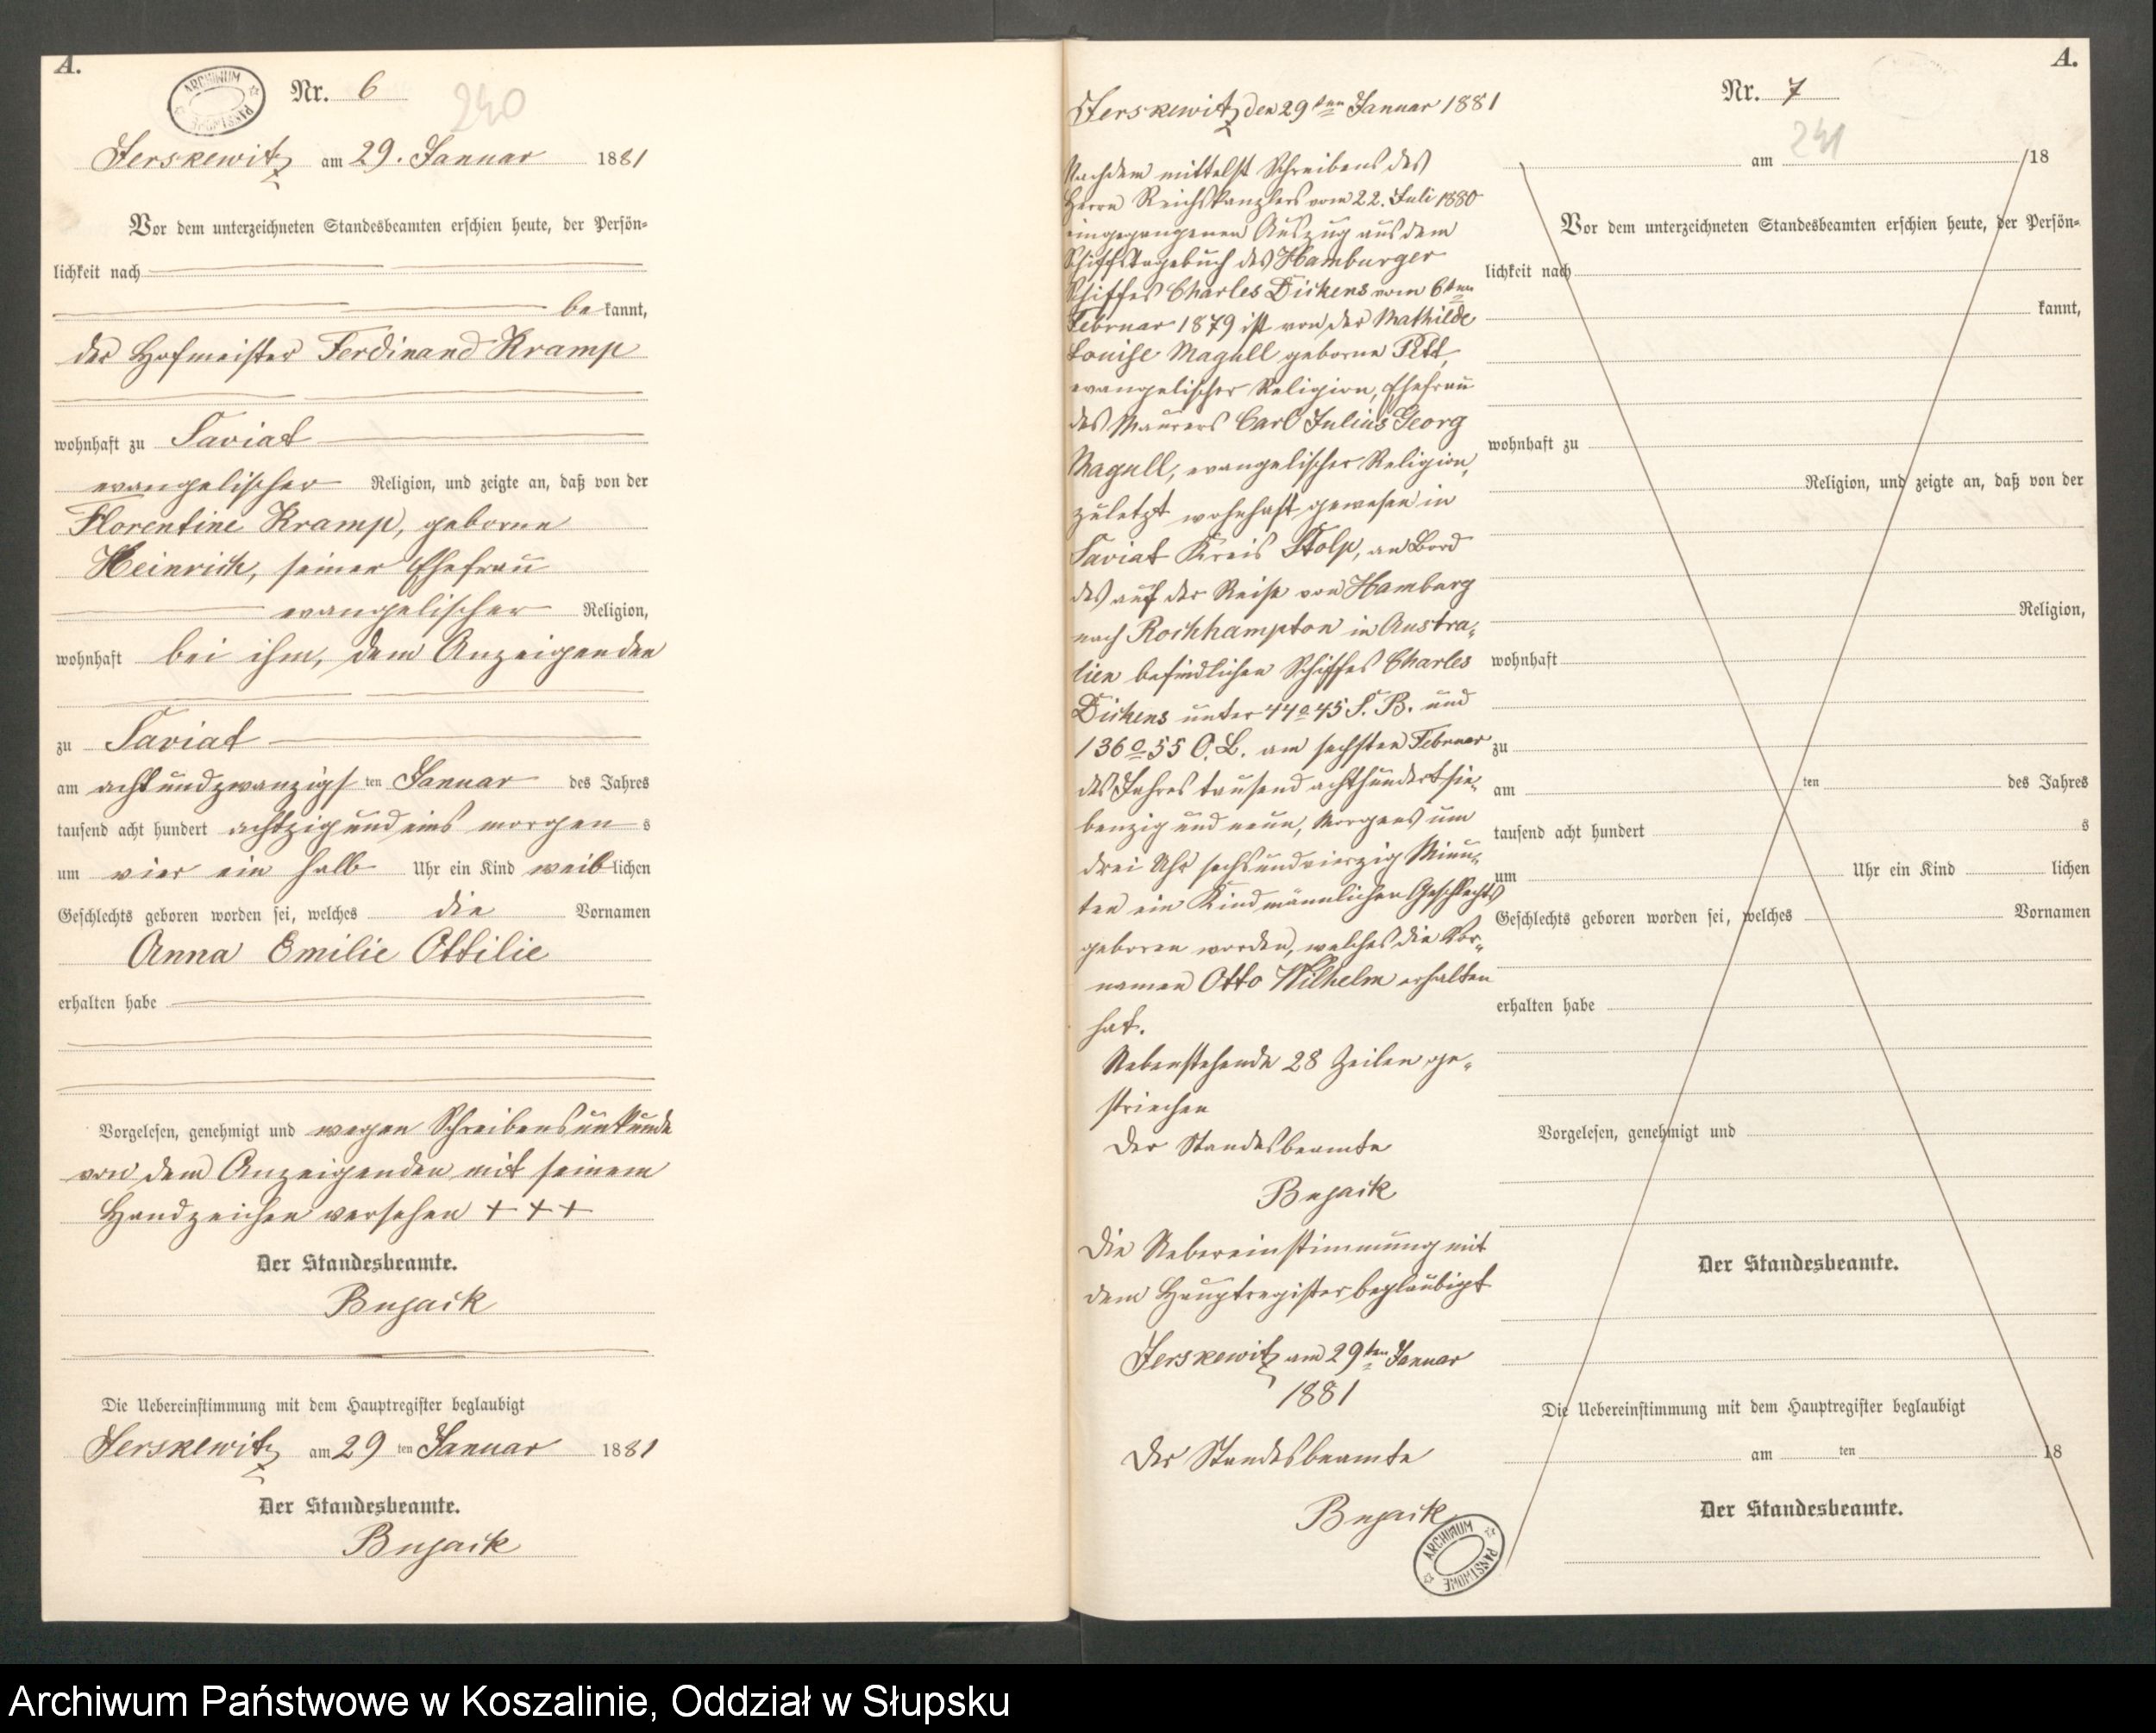 A.
ARCHIWUM PAŃSTWOWE
Nr. 6
240
Jerskewitz am 29. Januar 1881
Vor dem unterzeichneten Standesbeamten erschien heute, der Persön-
lichkeit nach
be kannt,
der Hofmeister Ferdinand Kramp
wohnhaft zu Saviat
evangelischer Religion, und zeigte an, daß von der
Florentine Kramp, geborne
Heinrich, seiner Ehefrau
evangelischer Religion,
wohnhaft bei ihm, dem Anzeigenden
zu Saviat
am achtundzwanzigs ten Januar des Jahres
tausend acht hundert achtzig und eins morgen s
um vier ein halb Uhr ein Kind weib lichen
Geschlechts geboren worden sei, welches die Vornamen
Anna Emilie Ottilie
erhalten habe
Vorgelesen, genehmigt und wegen Schreibensunkunde
von dem Anzeigenden mit seinem
Handzeichen versehen + + +
Der Standesbeamte.
Bujack
Die Uebereinstimmung mit dem Hauptregister beglaubigt
Jerskewitz am 29 ten Januar 1881
Der Standesbeamte.
Bujack
A.
Nr. 7
241
Jerskewitz den 29ten Januar 1881
Nachdem mittelst Schreibens des
Herrn Reichskanzlers vom 22. Juli 1880
eingegangenen Auszug aus dem
Schiffstagebuch des Hamburger
Schiffes Charles Dickens vom 6ten
Februar 1879 ist von der Mathilde
Louise Magull geborne
evangelischer Religion, Ehefrau
des Maurers Carl Julius Georg
Magull, evangelischer Religion,
zuletzt wohnhaft gewesen in
Saviat Kreis Stolp, an Bord
des auf der Reise von Hamburg
nach Rockhampton in Austra-
lien befindlichen Schiffes Charles
Dickens unter 44° 45 S. B. und
136° 55 O. L. am sechsten Februar
des Jahres tausend achthundert sie-
benzig und neun, Morgens um
drei Uhr sechsundvierzig Minu-
ten ein Kind männlichen Geschlechts
geboren worden, welches die Vor-
namen Otto Wilhelm erhalten
hat.
Nebenstehende 28 Zeilen ge-
strichen
Der Standesbeamte
Bujack
Die Uebereinstimmung mit
dem Hauptregister beglaubigt
Jerskewitz am 29ten Januar
1881
Der Standesbeamte
Bujack
ARCHIWUM PAŃSTWOWE
am 18
Vor dem unterzeichneten Standesbeamten erschien heute, der Persön-
lichkeit nach
kannt,
wohnhaft zu
Religion, und zeigte an, daß von der
Religion,
wohnhaft
zu
am ten des Jahres
tausend acht hundert s
um Uhr ein Kind lichen
Geschlechts geboren worden sei, welches Vornamen
erhalten habe
Vorgelesen, genehmigt und
Der Standesbeamte.
Die Uebereinstimmung mit dem Hauptregister beglaubigt
am ten 18
Der Standesbeamte.
Archiwum Państwowe w Koszalinie, Oddział w Słupsku